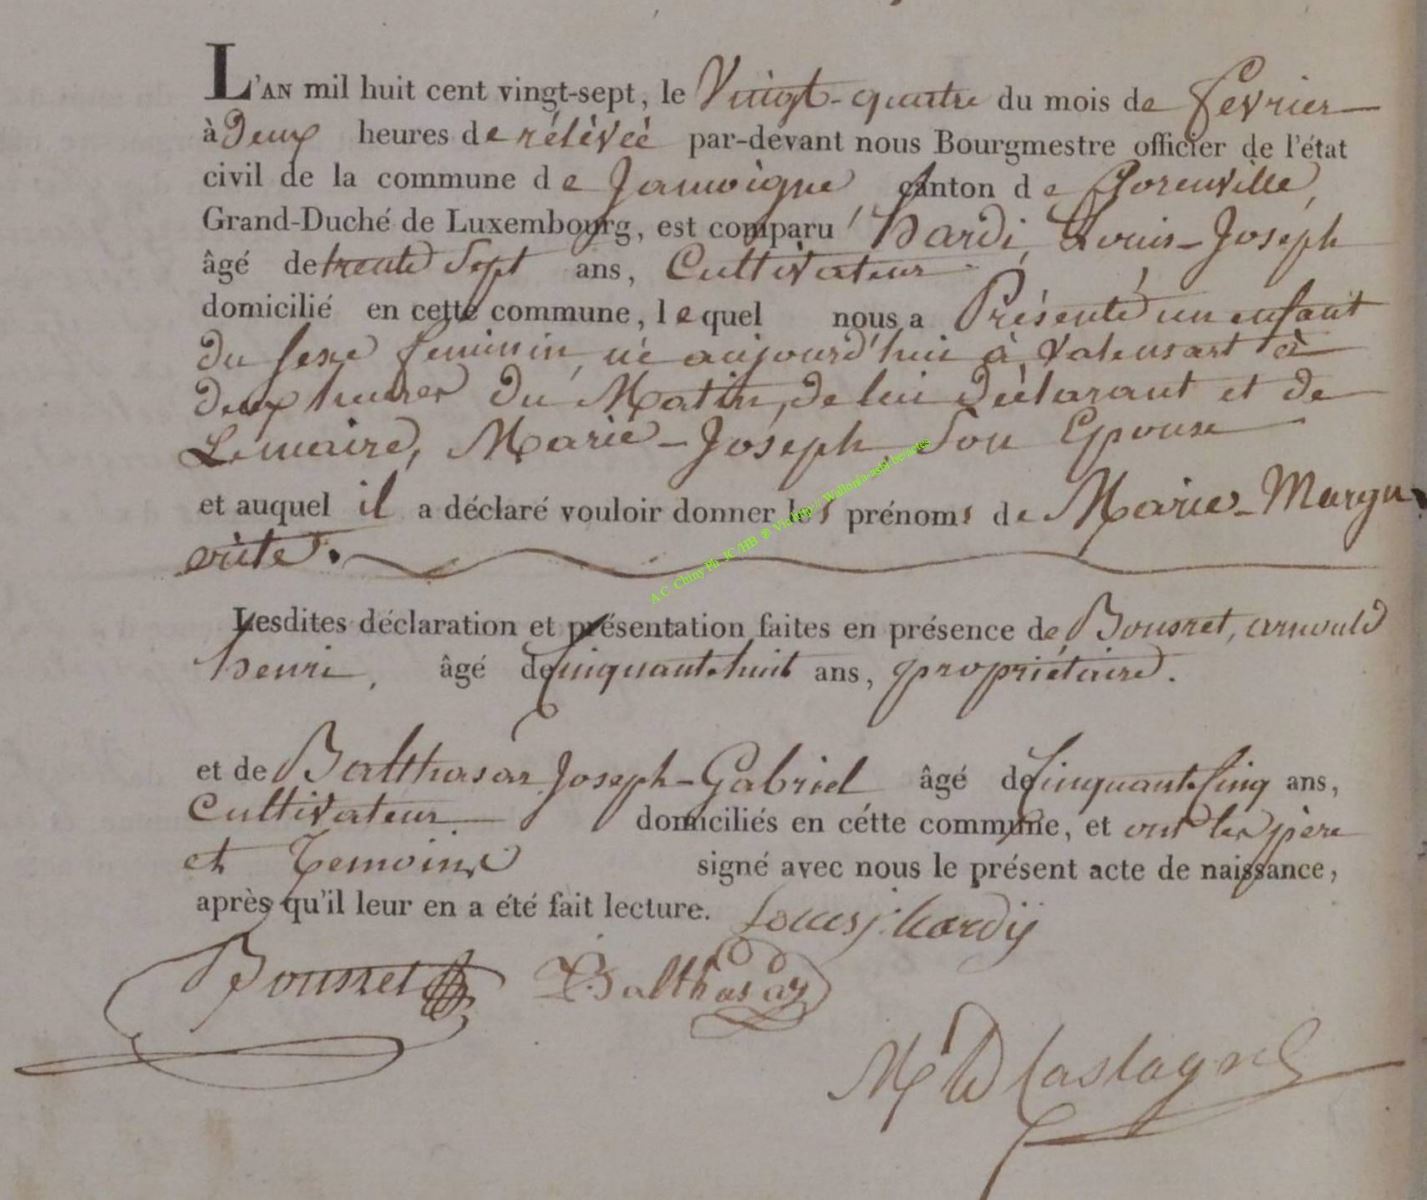 L'AN mil huit cent vingt-sept, le Vingt-quatre du mois de fevrier
à Deux heures de rélévée par-devant nous Bourgmestre officier de l'état
civil de la commune de Jamoigne, canton de florenville,
Grand-Duché de Luxembourg, est comparu hardi, Louis-Joseph
âgé de trente Sept ans, Cultivateur
domicilié en cette commune, lequel nous a Présenté un enfant
du sexe feminin, né aujourd'hui à Valensart à
deux heures du Matin, de lui déclarant et de
Lemaire, Marie-Joseph, Son Epouse
et auquel il a déclaré vouloir donner les prénoms de Marie-Margu
erite.
Lesdites déclaration et présentation faites en présence de Bousret, arnould
henri, âgé de cinquante huit ans, propriétaire.
et de Balthasar Joseph-Gabriel âgé de Cinquante Cinq ans,
Cultivateur domiciliés en cétte commune, et ont les père
et Temoins signé avec nous le présent acte de naissance,
après qu'il leur en a été fait lecture. Louis j. hardij
Bousret Balthasar
A C Chiny Ph JC/HB ®